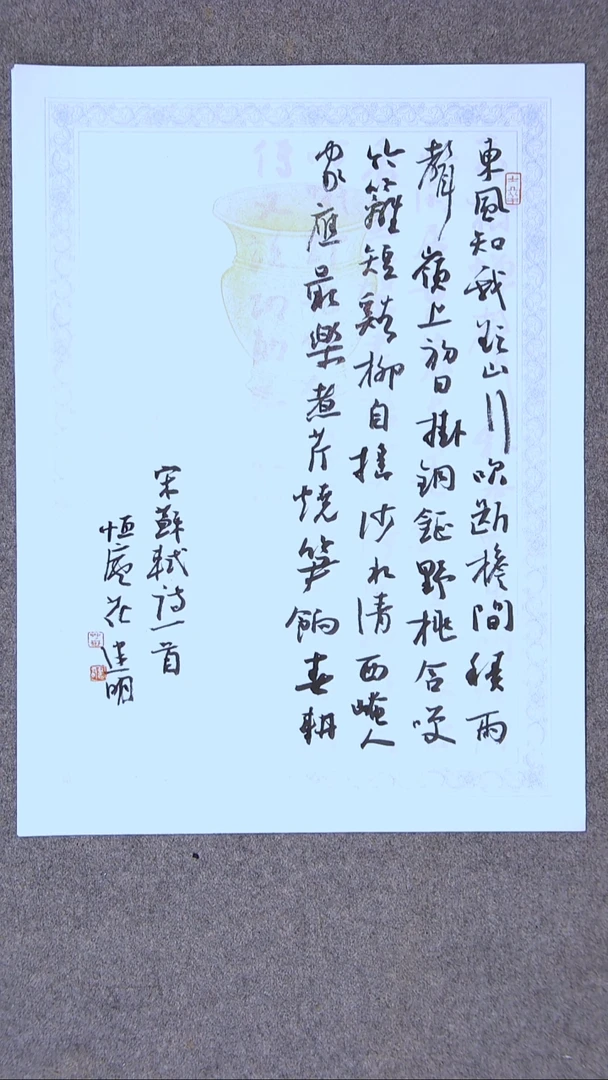 東風知我欲山行吹斷檐間積雨
聲嶺上初日掛銅鉦野桃含咲
竹籬短谿柳自搖沙水清西崦人
家應最樂煮芹燒笋餉春耕
宋蘇軾詩一首
恒庵花建明